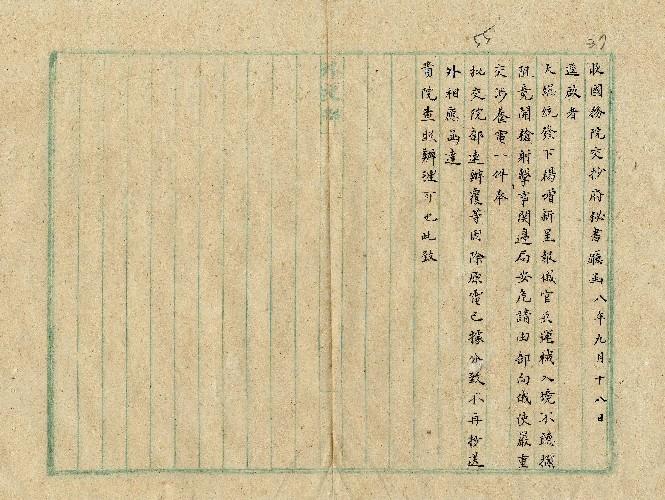 收國務院交抄府秘書廳函八年九月十八日
逕啟者
大總統發下楊增新呈報俄官兵運械入境不聽攔
阻竟開槍射擊事関邊局安危請由部向俄使嚴重
交涉養電一件奉
批交院部速辦覆等因除原電已據分致不再抄送
外相應函達
貴院查照辦理可也此致
55
37
外交部